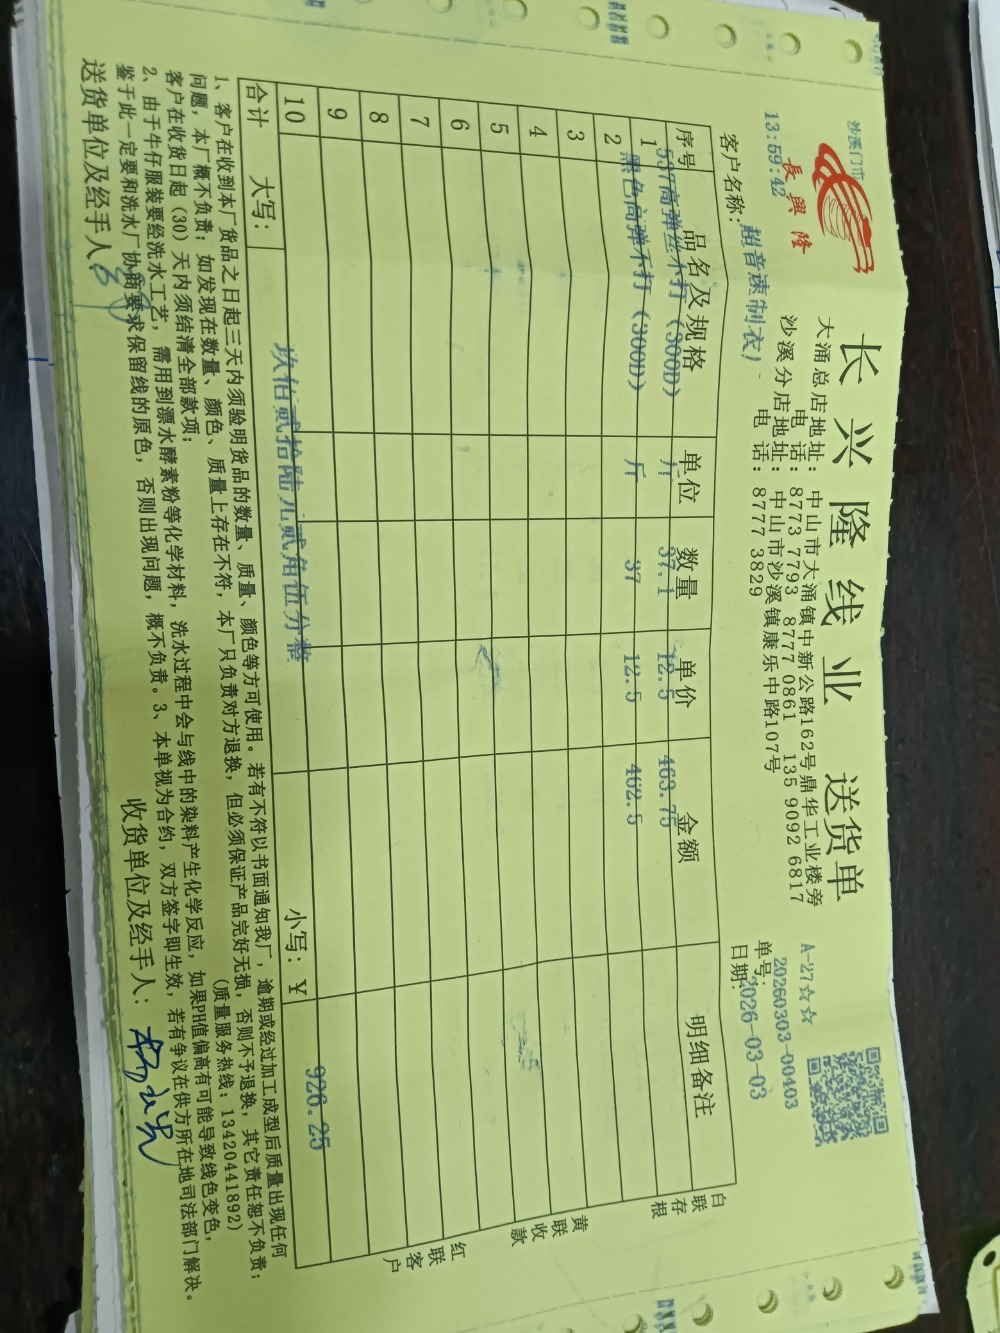 沙溪门市
長興隆
13:59:42
长兴隆线业 送货单
大涌总店地址: 中山市大涌镇中新公路162号鼎华工业楼旁
电 话: 8773 7793 8777 0861 135 9092 6817
沙溪分店地址: 中山市沙溪镇康乐中路107号
电 话: 8777 3829
A-27☆☆
单号: 20260303-00403
日期: 2026-03-03
客户名称: 超音速制衣厂
序号 品名及规格 单位 数量 单价 金额 明细备注
1 537高弹丝不打(300D) 斤 37.1 12.5 463.75
2 黑色高弹不打(300D) 斤 37 12.5 462.5
3
4
5
6
7
8
9
10
合计 大写: 玖佰贰拾陆元贰角伍分整 小写: ¥ 926.25
白联存根
黄联收款
红联客户
1、客户在收到本厂货品之日起三天内须验明货品的数量、质量、颜色等方可使用。若有不符以书面通知我厂,逾期或经过加工成型后质量出现任何
问题,本厂概不负责;如发现在数量、颜色、质量上存在不符,本厂只负责对方退换,但必须保证产品完好无损,否则不予退换,其它责任恕不负责;
客户在收货日起(30)天内须结清全部款项; (质量服务热线:13420441892)
2、由于牛仔服装要经洗水工艺,需用到漂水酵素粉等化学材料,洗水过程中会与线中的染料产生化学反应,如果PH值偏高有可能导致线色变色,
鉴于此一定要和洗水厂协商要求保留线的原色,否则出现问题,概不负责。3、本单视为合约,双方签字即生效,若有争议在供方所在地司法部门解决。
送货单位及经手人: 收货单位及经手人: